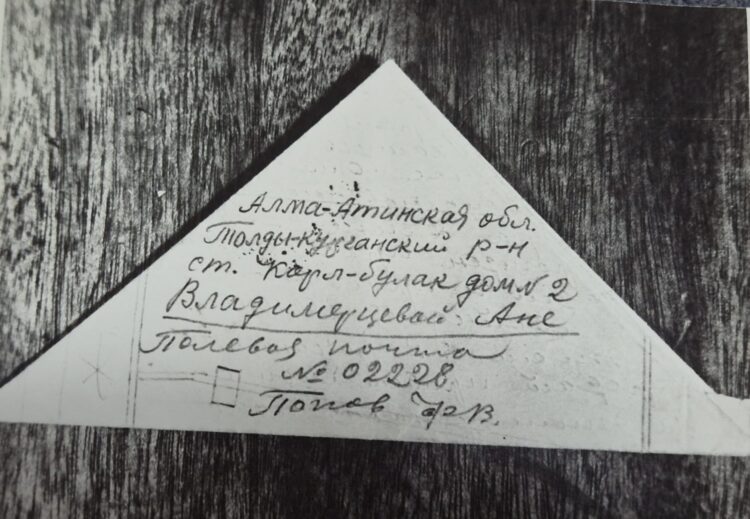 Алма-Атинская обл.
Талды-Курганский р-н
ст. Карл-булак дом № 2
Владимерцевой Ане
Полевая почта
№ 02228
Попов Ф В.